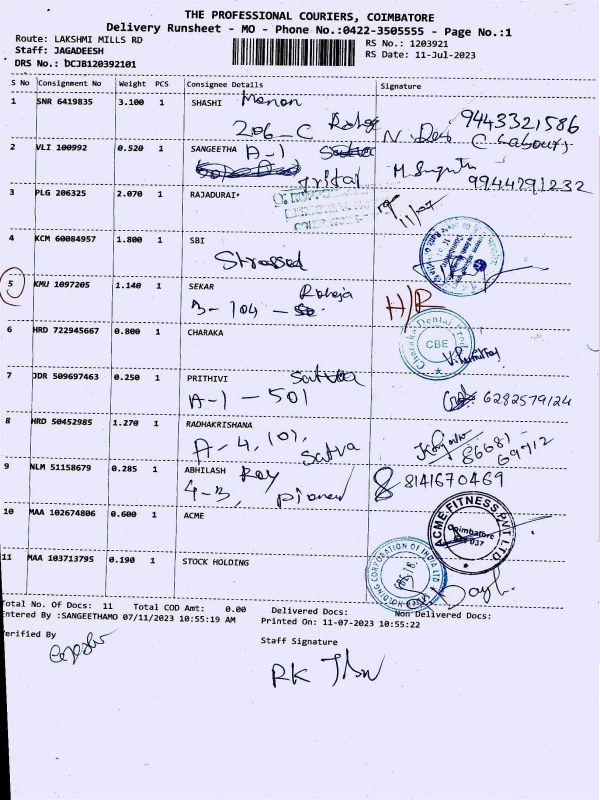 THE PROFESSIONAL COURIERS, COIMBATORE
Delivery Runsheet - MO - Phone No.:0422-3505555 - Page No.:1
Route: LAKSHMI MILLS RD
RS No.: 1203921
Staff: JAGADEESH
RS Date: 11-Jul-2023
DRS No.: DCJB120392101
S No Consignment No Weight PCS Consignee Details Signature
1 SNR 6419835 3.100 1 SHASHI Menon
206-C Raheja 9443321586
2 VLI 100992 0.520 1 SANGEETHA A-1
9944791232
3 PLG 206325 2.070 1 RAJADURAI*
11/07
4 KCM 60084957 1.800 1 SBI
Stressed
5 KMU 1097205 1.140 1 SEKAR Raheja
B-104 H/R
6 HRD 722945667 0.800 1 CHARAKA
Charaka Dental
CBE
7 JDR 509697463 0.250 1 PRITHIVI Satva
A-1-501 6282579124
8 HRD 50452985 1.270 1 RADHAKRISHANA
A-4, 101, Satva 86681 69912
9 NLM 51158679 0.285 1 ABHILASH Roy
4-B, pioneer 8141670469
10 MAA 102674806 0.600 1 ACME
ACME FITNESS PVT LTD
Coimbatore
11 MAA 103713795 0.190 1 STOCK HOLDING
STOCK HOLDING CORPORATION OF INDIA LTD
Total No. Of Docs: 11 Total COD Amt: 0.00 Delivered Docs: Non Delivered Docs:
Entered By :SANGEETHAMO 07/11/2023 10:55:19 AM Printed On: 11-07-2023 10:55:22
Verified By
Staff Signature
RK